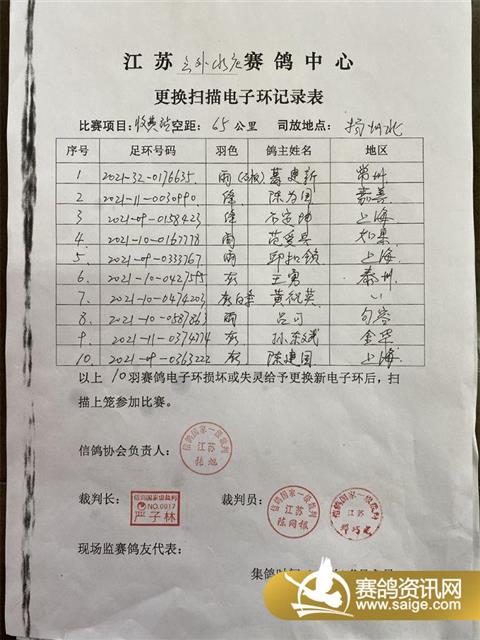 江苏云外水庄赛鸽中心
更换扫描电子环记录表
比赛项目:收费站空距:65公里 司放地点:扬州北
序号 足环号码 羽色 鸽主姓名 地区
1 2021-32-0176635 雨(白条) 葛建新 常州
2 2021-11-0030990 绛 陈为国 嘉善
3 2021-09-0158423 绛 上海
4. 2021-10-0167778 雨 范爱县 如皋
5. 2021-09-0333767 雨 邱扣锁 上海
6. 2021-10-0427595 灰 王勇 泰州
7. 2021-10-0474203 灰白条 黄祝英 〃
8 2021-10-0587863 雨 吕可 句容
9 2021-11-0374174 灰 孙荣斌 金华
10. 2021-09-0363222 灰 陈建国 上海
以上10羽赛鸽电子环损坏或失灵给予更换新电子环后,扫
描上笼参加比赛。
信鸽协会负责人: 信鸽国家一级裁判 江苏 张旭
裁判长: 信鸽国家一级裁判 NO.0017 严子林 裁判员: 信鸽国家一级裁判 江苏 陈同银 信鸽国家一级裁判 江苏
现场监赛鸽友代表:
集鸽时间
赛鸽资讯网
www.saige.com